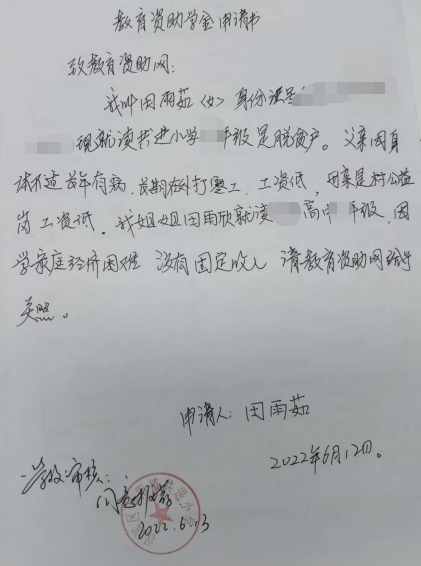 教育资助学金申请书
致教育资助网：
我叫田雨茹〈女〉身份证号
现就读共进小学 年级是脱贫户。父亲因身
体不适长年有病，长期在外打零工，工资低，母亲是村公益
岗工资低。我姐姐田雨欣就读 高中 年级，因
学家庭经济困难 没有固定收入 请教育资助网给予
关照。
申请人：田雨茹
2022年6月12日。
学校审核：
同意报送
2022.6.13